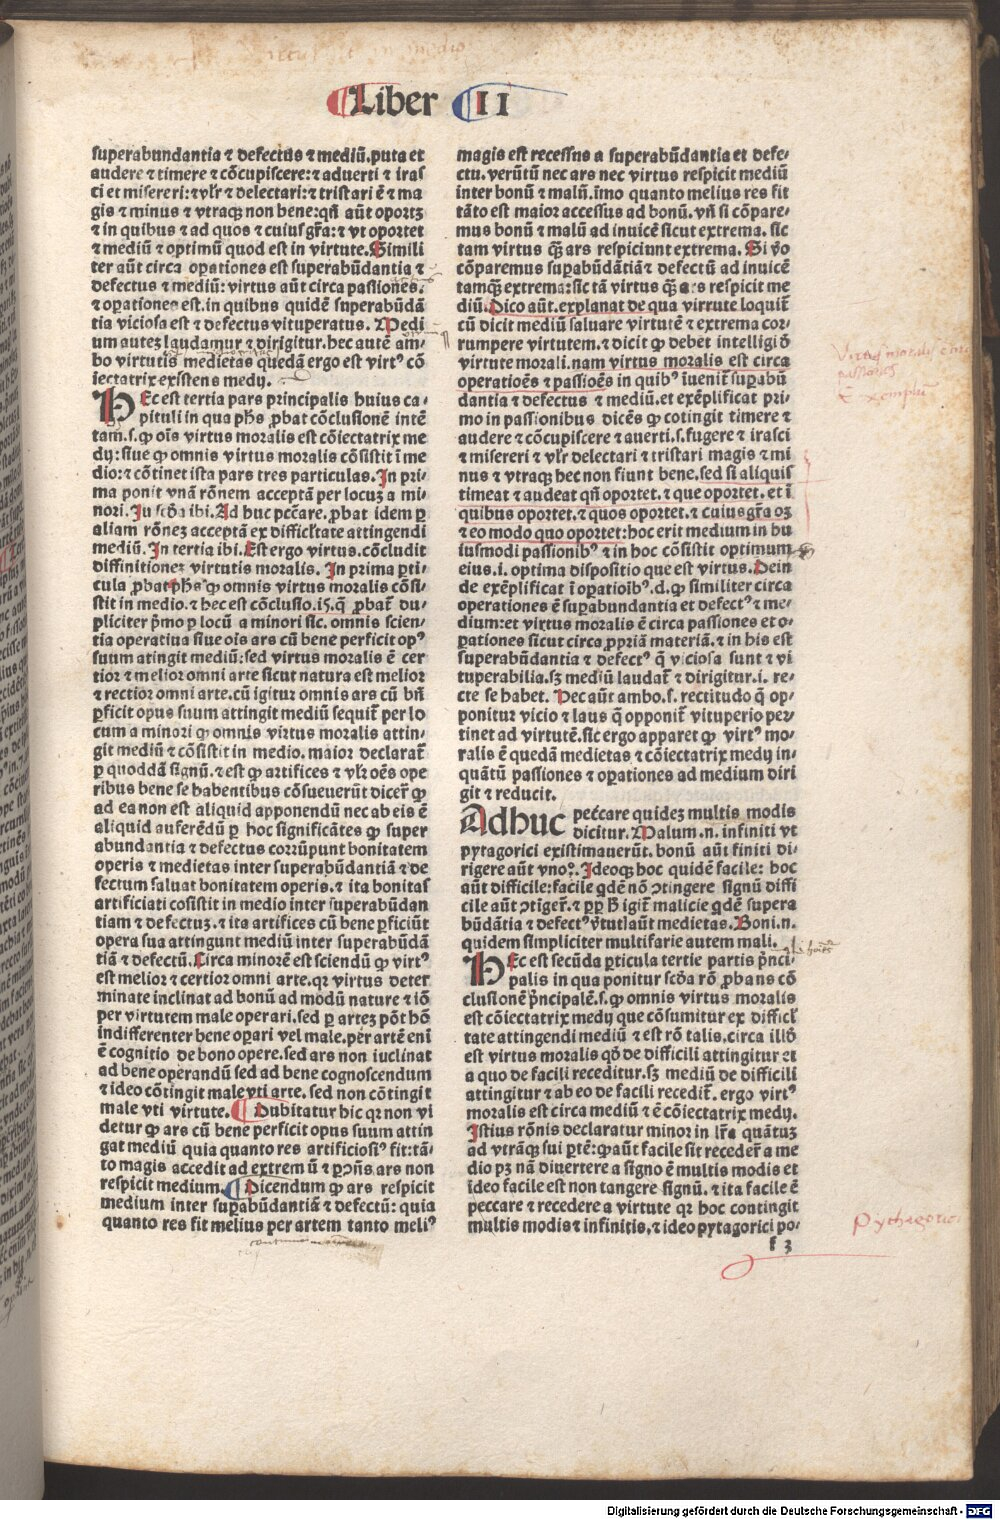 Liber II
superabundantia ⁊ defectus ⁊ mediū.puta et
audere ⁊ timere ⁊ cōcupiscere:⁊ aduerti ⁊ iras
ci et misereri:⁊ vlr̄ ⁊ delectari:⁊ tristari ē ⁊ ma
gis ⁊ minus ⁊ vtraqꝫ non bene:qn̄ aūt oportꝫ
⁊ in quibus ⁊ ad quos ⁊ cuius gr̄a:⁊ vt oportet
⁊ mediū ⁊ optimū quod est in virtute.Simili
ter aūt circa oꝑationes est superabūdātia ⁊
defectus ⁊ mediū:virtus aūt circa passiones.
⁊ oꝑationes est.in quibus quidē superabūdā
tia viciosa est ⁊ defectus vituperatus. Medi
um autez laudamur ⁊ dirigitur.hec autē am-
bo virtutis medietas quedā ergo est virtꝰ cō
iectatrix existens medij.
HEc est tertia pars principalis huius ca-
pituli in qua ph̄s ꝓbat cōclusionē intē
tam.s.ꝙ oīs virtus moralis est cōiectatrix me
dij:siue ꝙ omnis virtus moralis cōsistit ī me
dio:⁊ cōtinet ista pars tres particulas.In pri-
ma ponit vnā rōnem acceptā per locuz a mi-
nori.In scd̄a ibi.Ad huc pccare.ꝓbat idem ꝑ
aliam rōnez acceptā ex difficltate attingendi
mediū.In tertia ibi.Est ergo virtus.cōcludit
diffinitionez virtutis moralis. In prima ꝑti-
cula ꝓbat ph̄s ꝙ omnis virtus moralis cōsi-
stit in medio.⁊ hec est cōclusio.iꝫ.q̄ ꝓbat̄ du-
pliciter pͥmo ꝑ locū a minori sic. omnis scien-
tia operatiua siue oīs ars cū bene perficit opꝰ
suum atingit mediū:sed virtus moralis ē cer
tior ⁊ melior omni arte sicut natura est melior
⁊ rectior omni arte.cū igitur omnis ars cū bn̄
ꝑficit opus suum attingit mediū sequit̄ per lo
cum a minori ꝙ omnis virtus moralis attin-
git mediū ⁊ cōsistit in medio. maior declarat̄
ꝑ quoddā signū.⁊ est ꝙ artifices ⁊ vlr̄ oēs ope
ribus bene se habentibus cōsueuerūt dicer̄ ꝙ
ad ea non est aliquid apponendū nec ab eis ē
aliquid auferēdū ꝑ hoc significātes ꝙ super
abundantia ⁊ defectus corrūpunt bonitatem
operis ⁊ medietas inter superabūdātiā ⁊ de
fectum saluat bonitatem operis.⁊ ita bonitas
artificiati cōsistit in medio inter superabūdan
tiam ⁊ defectuz.⁊ ita artifices cū bene ꝑficiūt
opera sua attingunt mediū inter superabūdā
tiā ⁊ defectū.Circa minorē est sciendū ꝙ virtꝰ
est melior ⁊ certior omni arte.qꝛ virtus deter
minate inclinat ad bonū ad modū nature ⁊ iō
per virtutem male operari.sed ꝑ artez pōt hō
indifferenter bene oꝑari vel male.per artē enī
ē cognitio de bono opere.sed ars non iuclinat
ad bene operandū sed ad bene cognoscendum
⁊ ideo cōtingit male vti arte. sed non cōtingit
male vti virtute. Dubitatur hic qꝛ non vi
detur ꝙ ars cū bene perficit opus suum attin
gat mediū quia quanto res artificiosiꝰ fit:tā-
to magis accedit ad extremū ⁊ ꝑ ꝯn̄s ars non
respicit medium. Dicendum ꝙ ars respicit
medium inter suꝑabūdātiā ⁊ defectū: quia
quanto res fit melius per artem tanto meliꝰ
magis est recessus a superabūdantia et defe-
ctu. verūtū nec ars nec virtus respicit mediū
inter bonū ⁊ malū.īmo quanto melius res fit
tāto est maior accessus ad bonū. vn̄ si cōpare-
mus bonū ⁊ malū ad inuicē sicut extrema. sic
tam virtus qꝫ̄ ars respiciunt extrema. Si v̄o
cōparemus suꝑabūdātiā ⁊ defectū ad inuicē
tamqꝫ̄ extrema:sic tā virtus qꝫ̄ ars respicit me
diū.Dico aūt.explanat de qua virtute loquit̄
cū dicit mediū saluare virtutē ⁊ extrema cor-
rumpere virtutem.⁊ dicit ꝙ debet intelligi ō
virtute morali.nam virtus moralis est circa
operatioēs ⁊ passioēs in quibꝰ īuenit̄ suꝑabū
dantia ⁊ defectus ⁊ mediū.et exēplificat pri-
mo in passionibus dicēs ꝙ cotingit timere ⁊
audere ⁊ cōcupiscere ⁊ auerti.s.fugere ⁊ irasci
⁊ misereri ⁊ vlr̄ delectari ⁊ tristari magis ⁊ mi
nus ⁊ vtraqꝫ hec non fiunt bene.sed si aliquis
timeat ⁊ audeat qn̄ oportet.⁊ que oportet.et ī
quibus oportet.⁊ quos oportet.⁊ cuius gr̄a oꝫ
⁊ eo modo quo oportet:hoc erit medium in hu
iusmodi passionibꝰ ⁊ in hoc cōsistit optimum
eius.i.optima dispositio que est virtus.Dein
de exēplificat ī oꝑatioibꝰ.d.ꝙ similiter circa
operationes ē suꝑabundantia et defectꝰ ⁊ me-
dium:et virtus moralis ē circa passiones et o-
ꝑationes sicut circa ꝓpriā materiā.⁊ in his est
superabūdantia ⁊ defectꝰ q̄ viciosa sunt ⁊ vi
tuperabilia.sꝫ mediū laudat̄ ⁊ dirigitur.i.re-
cte se habet. Hec aūt ambo.s.rectitudo q̄ op-
ponitur vicio ⁊ laus q̄ opponit̄ vituperio per-
tinet ad virtutē.sic ergo apparet ꝙ virtꝰ mo-
ralis ē quedā medietas ⁊ cōiectatrix medij in-
quātū passiones ⁊ oꝑationes ad medium diri
git ⁊ reducit.
Adhuc peccare quidez multis modis
dicitur.Malum.n.infiniti vt
pytagorici existimauerūt.bonū aūt finiti di-
rigere aūt vno?.Ideoqꝫ hoc quidē facile: hoc
aūt difficile:facile qͥdē nō ꝯtingere signū diffi
cile aūt ꝯtiger̄.⁊ ꝓp h̄ igit̄ malicie qͥdē supera
būdātia ⁊ defectꝰ v̄tutꝭ aūt medietas.Boni.n.
quidem simpliciter multifarie autem mali.
HEc est secūda ꝑticula tertie partis pͥnci-
palis in qua ponitur scd̄a rō ꝓbans cō
clusionē pͥncipalē.s.ꝙ omnis virtus moralis
est cōiectatrix medij que cōsumitur ex difficl
tate attingendi mediū ⁊ est rō talis.circa illō
est virtus moralis qō de difficili attingitur et
a quo de facili receditur.sꝫ mediū de difficili
attingitur ⁊ ab eo de facili recedit̄. ergo virtꝰ
moralis est circa mediū ⁊ ē cōiectatrix medij.
Istius rōnis declaratur minor in lr̄a quātuꝫ
ad vtrāqꝫ sui ꝑtē:ꝙ aūt facile sit receder̄ a me
dio pꝫ nā diuertere a signo ē multis modis et
ideo facile est non tangere signū.⁊ ita facile ē
peccare ⁊ recedere a virtute qꝛ hoc contingit
multis modis ⁊ infinitis.⁊ ideo pytagorici po-
f 3
Pythagorici
Digitalisierung gefördert durch die Deutsche Forschungsgemeinschaft - DFG